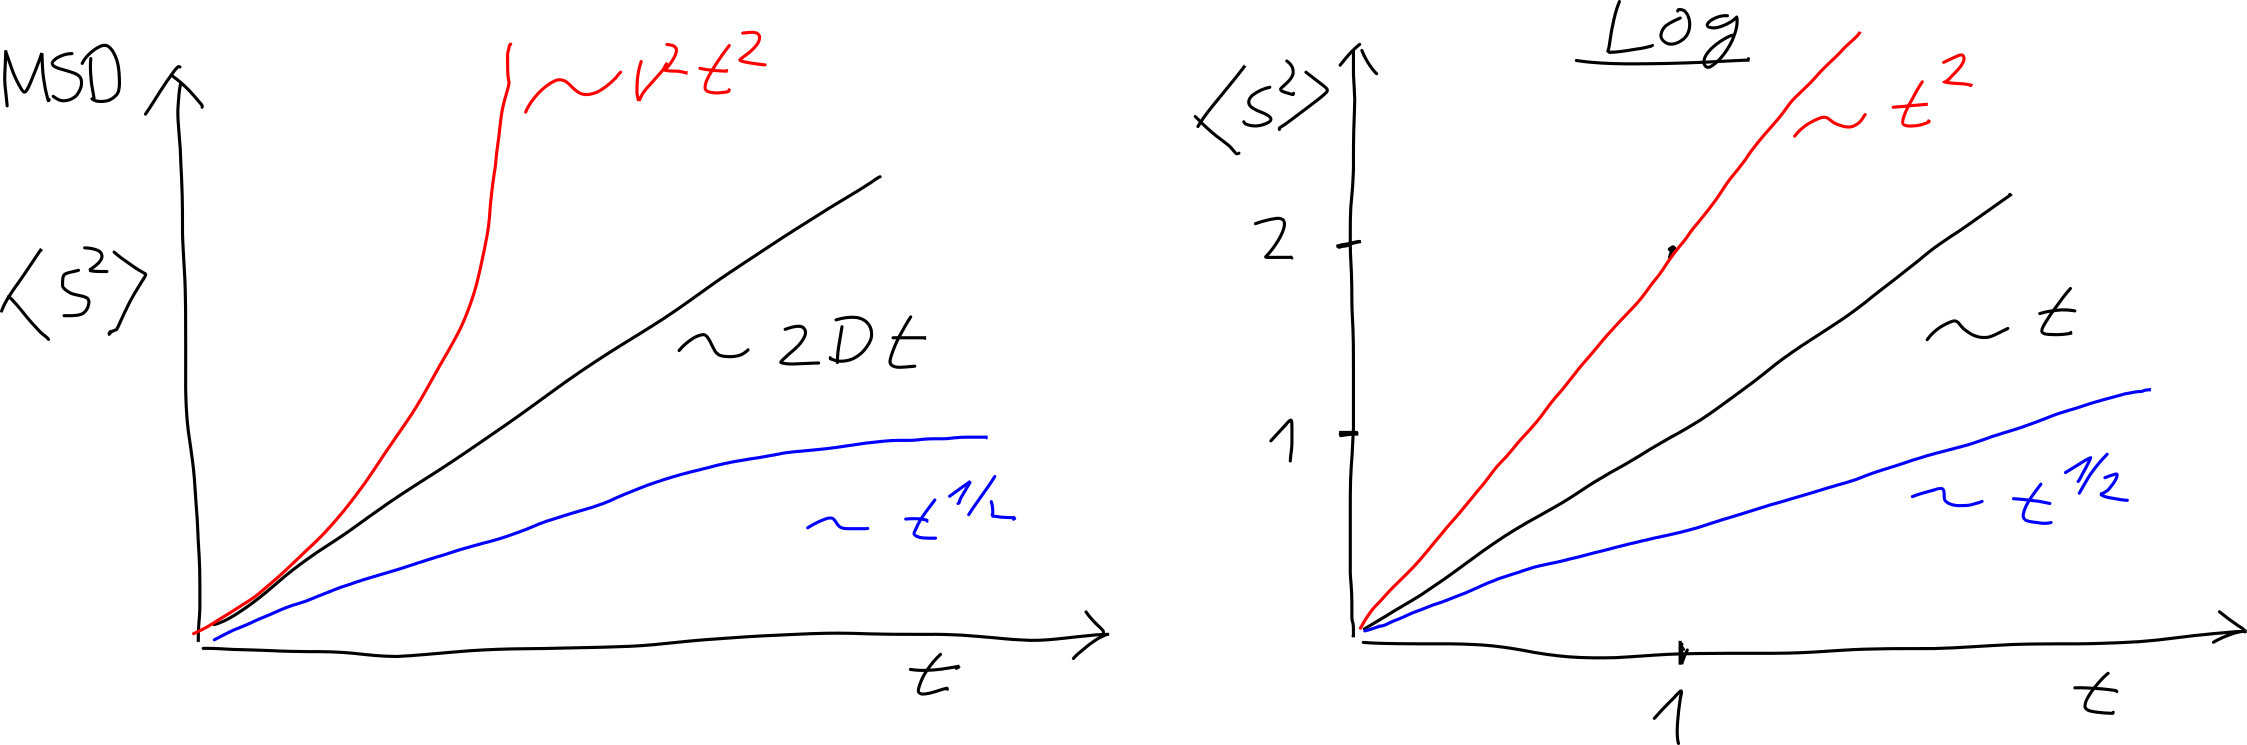 MSD
<S²>
~ v² t²
~ 2Dt
~ t^1/2
t
Log
<S²>
2
1
~ t²
~ t
~ t^1/2
1
t